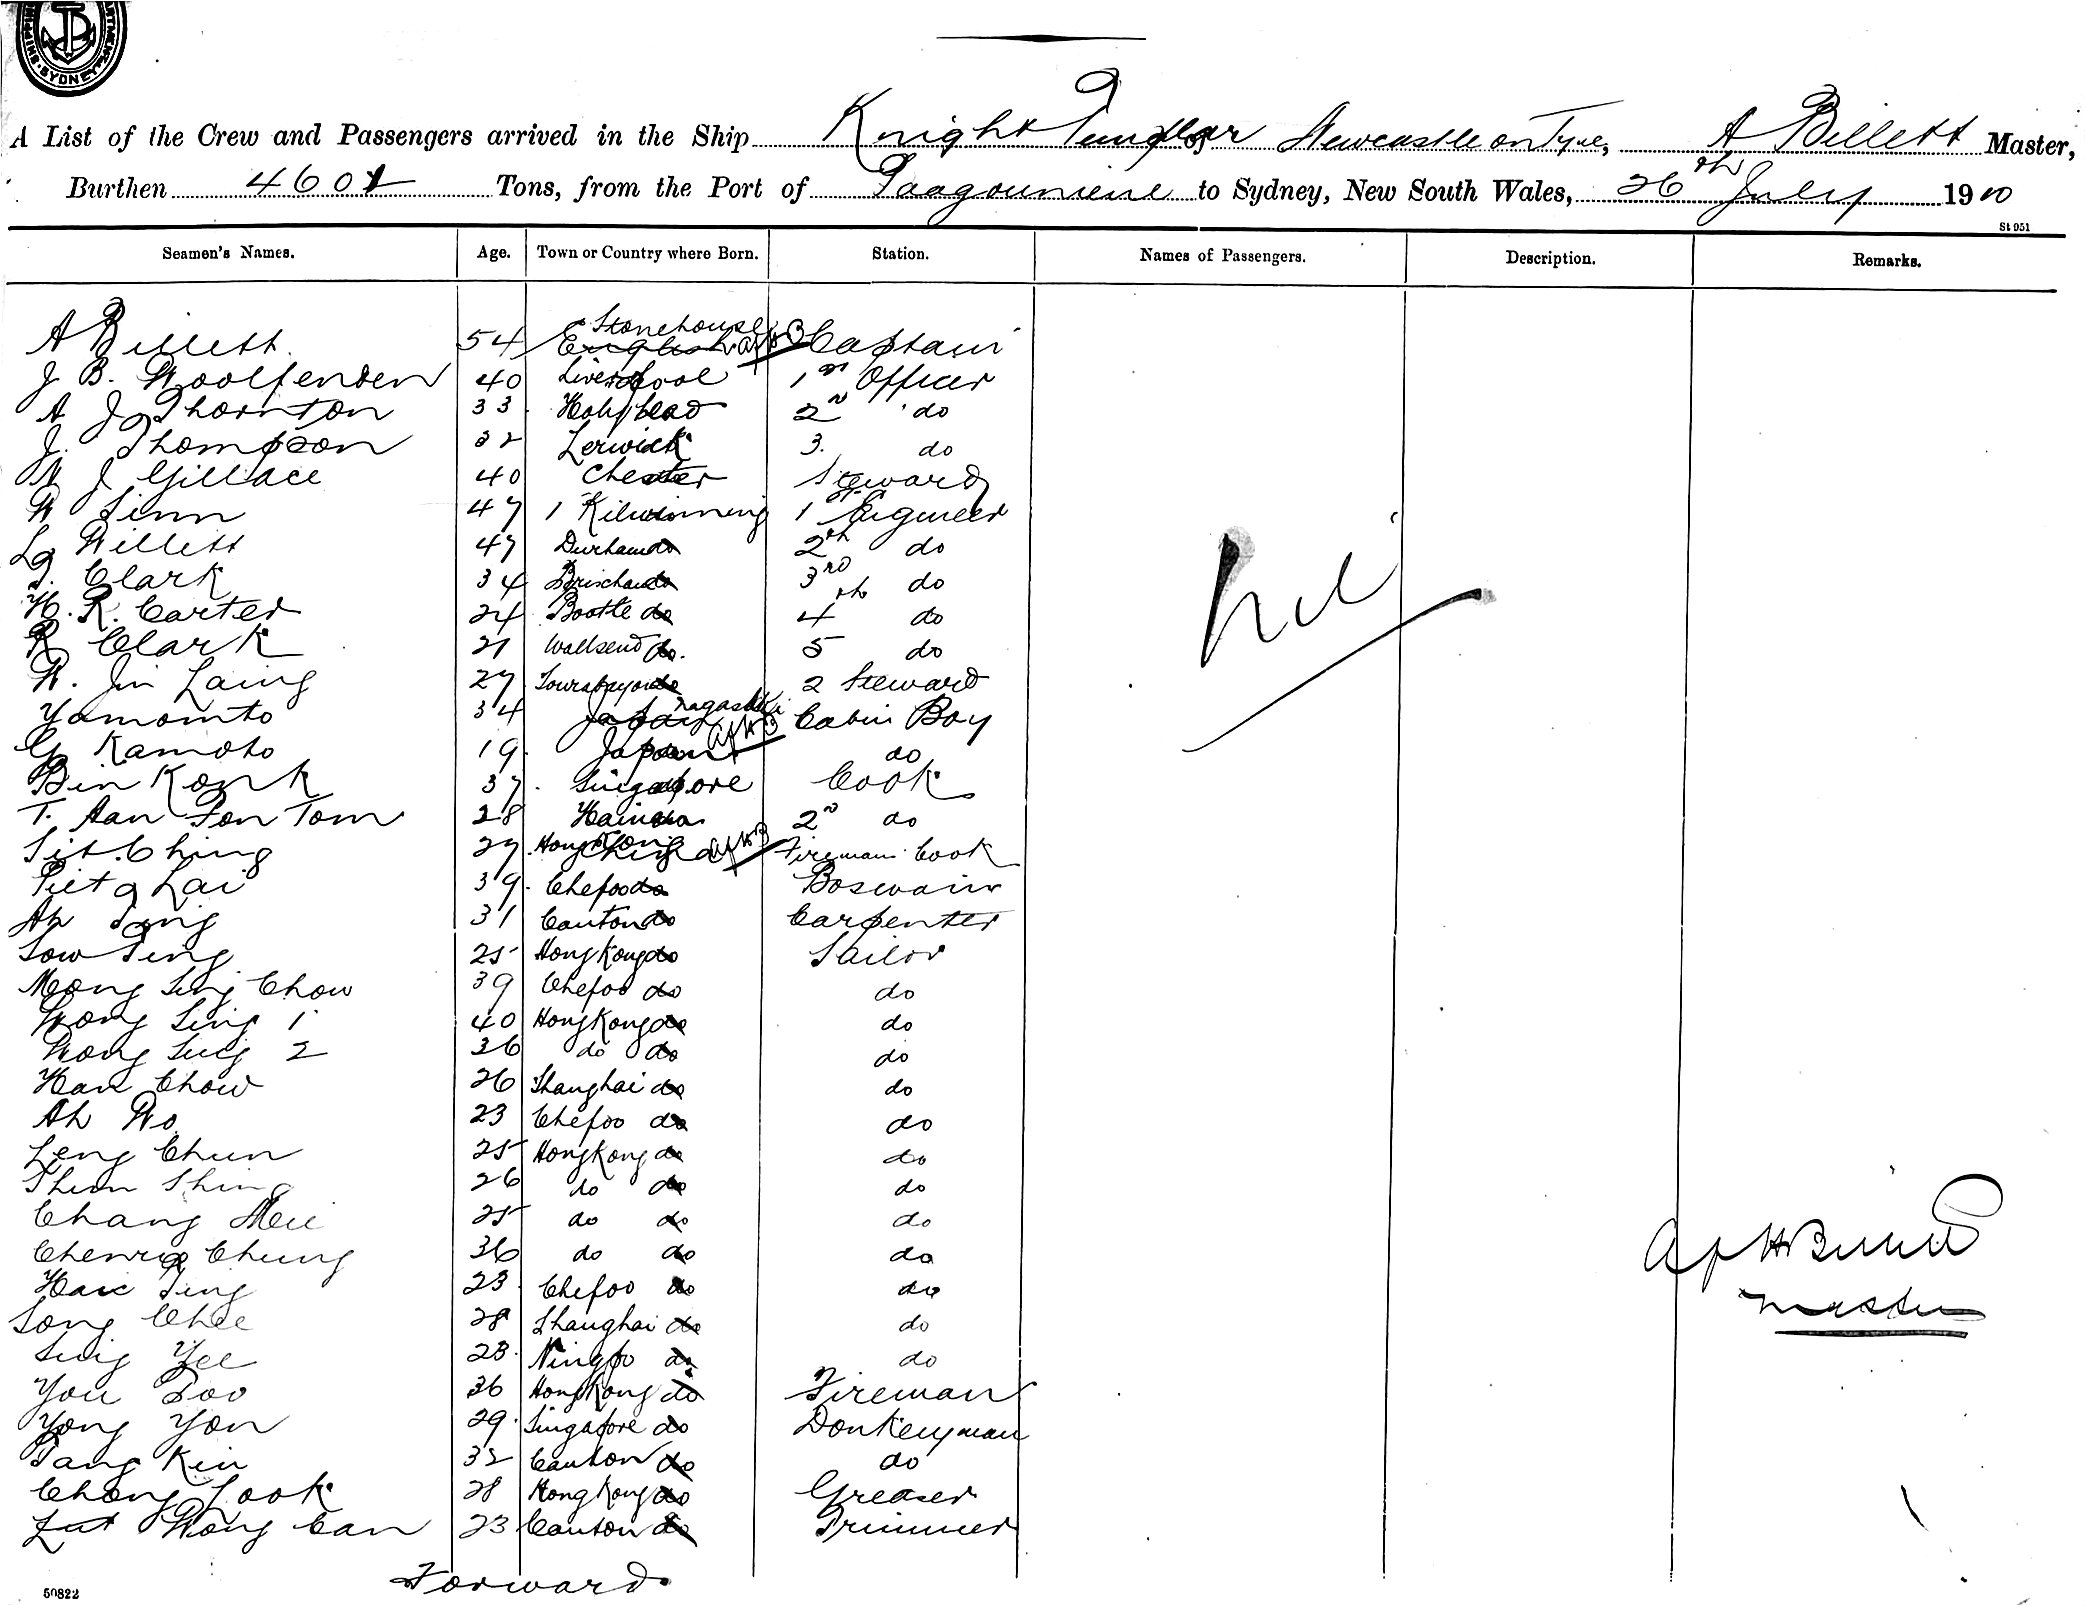 SYDNEY
A List of the Crew and Passengers arrived in the Ship Knight Templar of Newcastle on Tyne, A Billett Master,
Burthen 4601 Tons, from the Port of Paagoumene to Sydney, New South Wales, 26th July 1910
St 951
Seamen's Names. Age. Town or Country where Born. Station. Names of Passengers. Description. Remarks.
Stonehouse
A Billett 54 English Captain
J B. Woolfenden 40 Liverpool 1st Officer
A J Thornton 33 Holyhead 2n do
J. Thompson 32 Lerwick 3. do
W J Gillace 40 Chester Steward
W Linn 47 1 Kilwinning 1st Engineer
Lg Willett 47 Durham do 2th do
J. Clark 34 do 3rd do
W. R. Carter 24 Bootle do 4th do
R Clark 21 Wallsend do. 5 do
W. Jin Laing 27 Sourabaya do 2 Steward
Nagasaki
Yamomto 34 Japan Cabin Boy
G Kamoto 19 Japan do
Bin Konk 37 Singapore Cook
T. Aan Fon Tom 28 2n do
Hong Kong
Sit Ching 27 China Firemans Cook
Piet a Lai 39 Chefoo do Boswain
Ah Tong 31 Canton do Carpenter
Sow Ting 25 Hong Kong do Sailor
Mong Sing Chow 39 Chefoo do do
Wong Sing 1 40 Hong Kong do do
Wong Sing 2 36 do do do
Han Chow 26 Shanghai do do
Ah Wo 23 Chefoo do do
Leng Chun 25 Hong Kong do do
Thun Shing 26 do do do
Chang Mei 25 do do do
Cheung Chung 36 do do do
Ting 23 Chefoo do do
Song Chee 28 Shanghai do do
Sing Yee 23 Ningpo do do
You Soo 36 Hong Kong do Fireman
Yong Yon 29 Singapore do Donkeyman
Tang Kin 32 Canton do do
Chong Look 28 Hong Kong do Greaser
Wong Can 23 Canton do Trimmer
Forward
50822
Nil
A J H Billett
Master